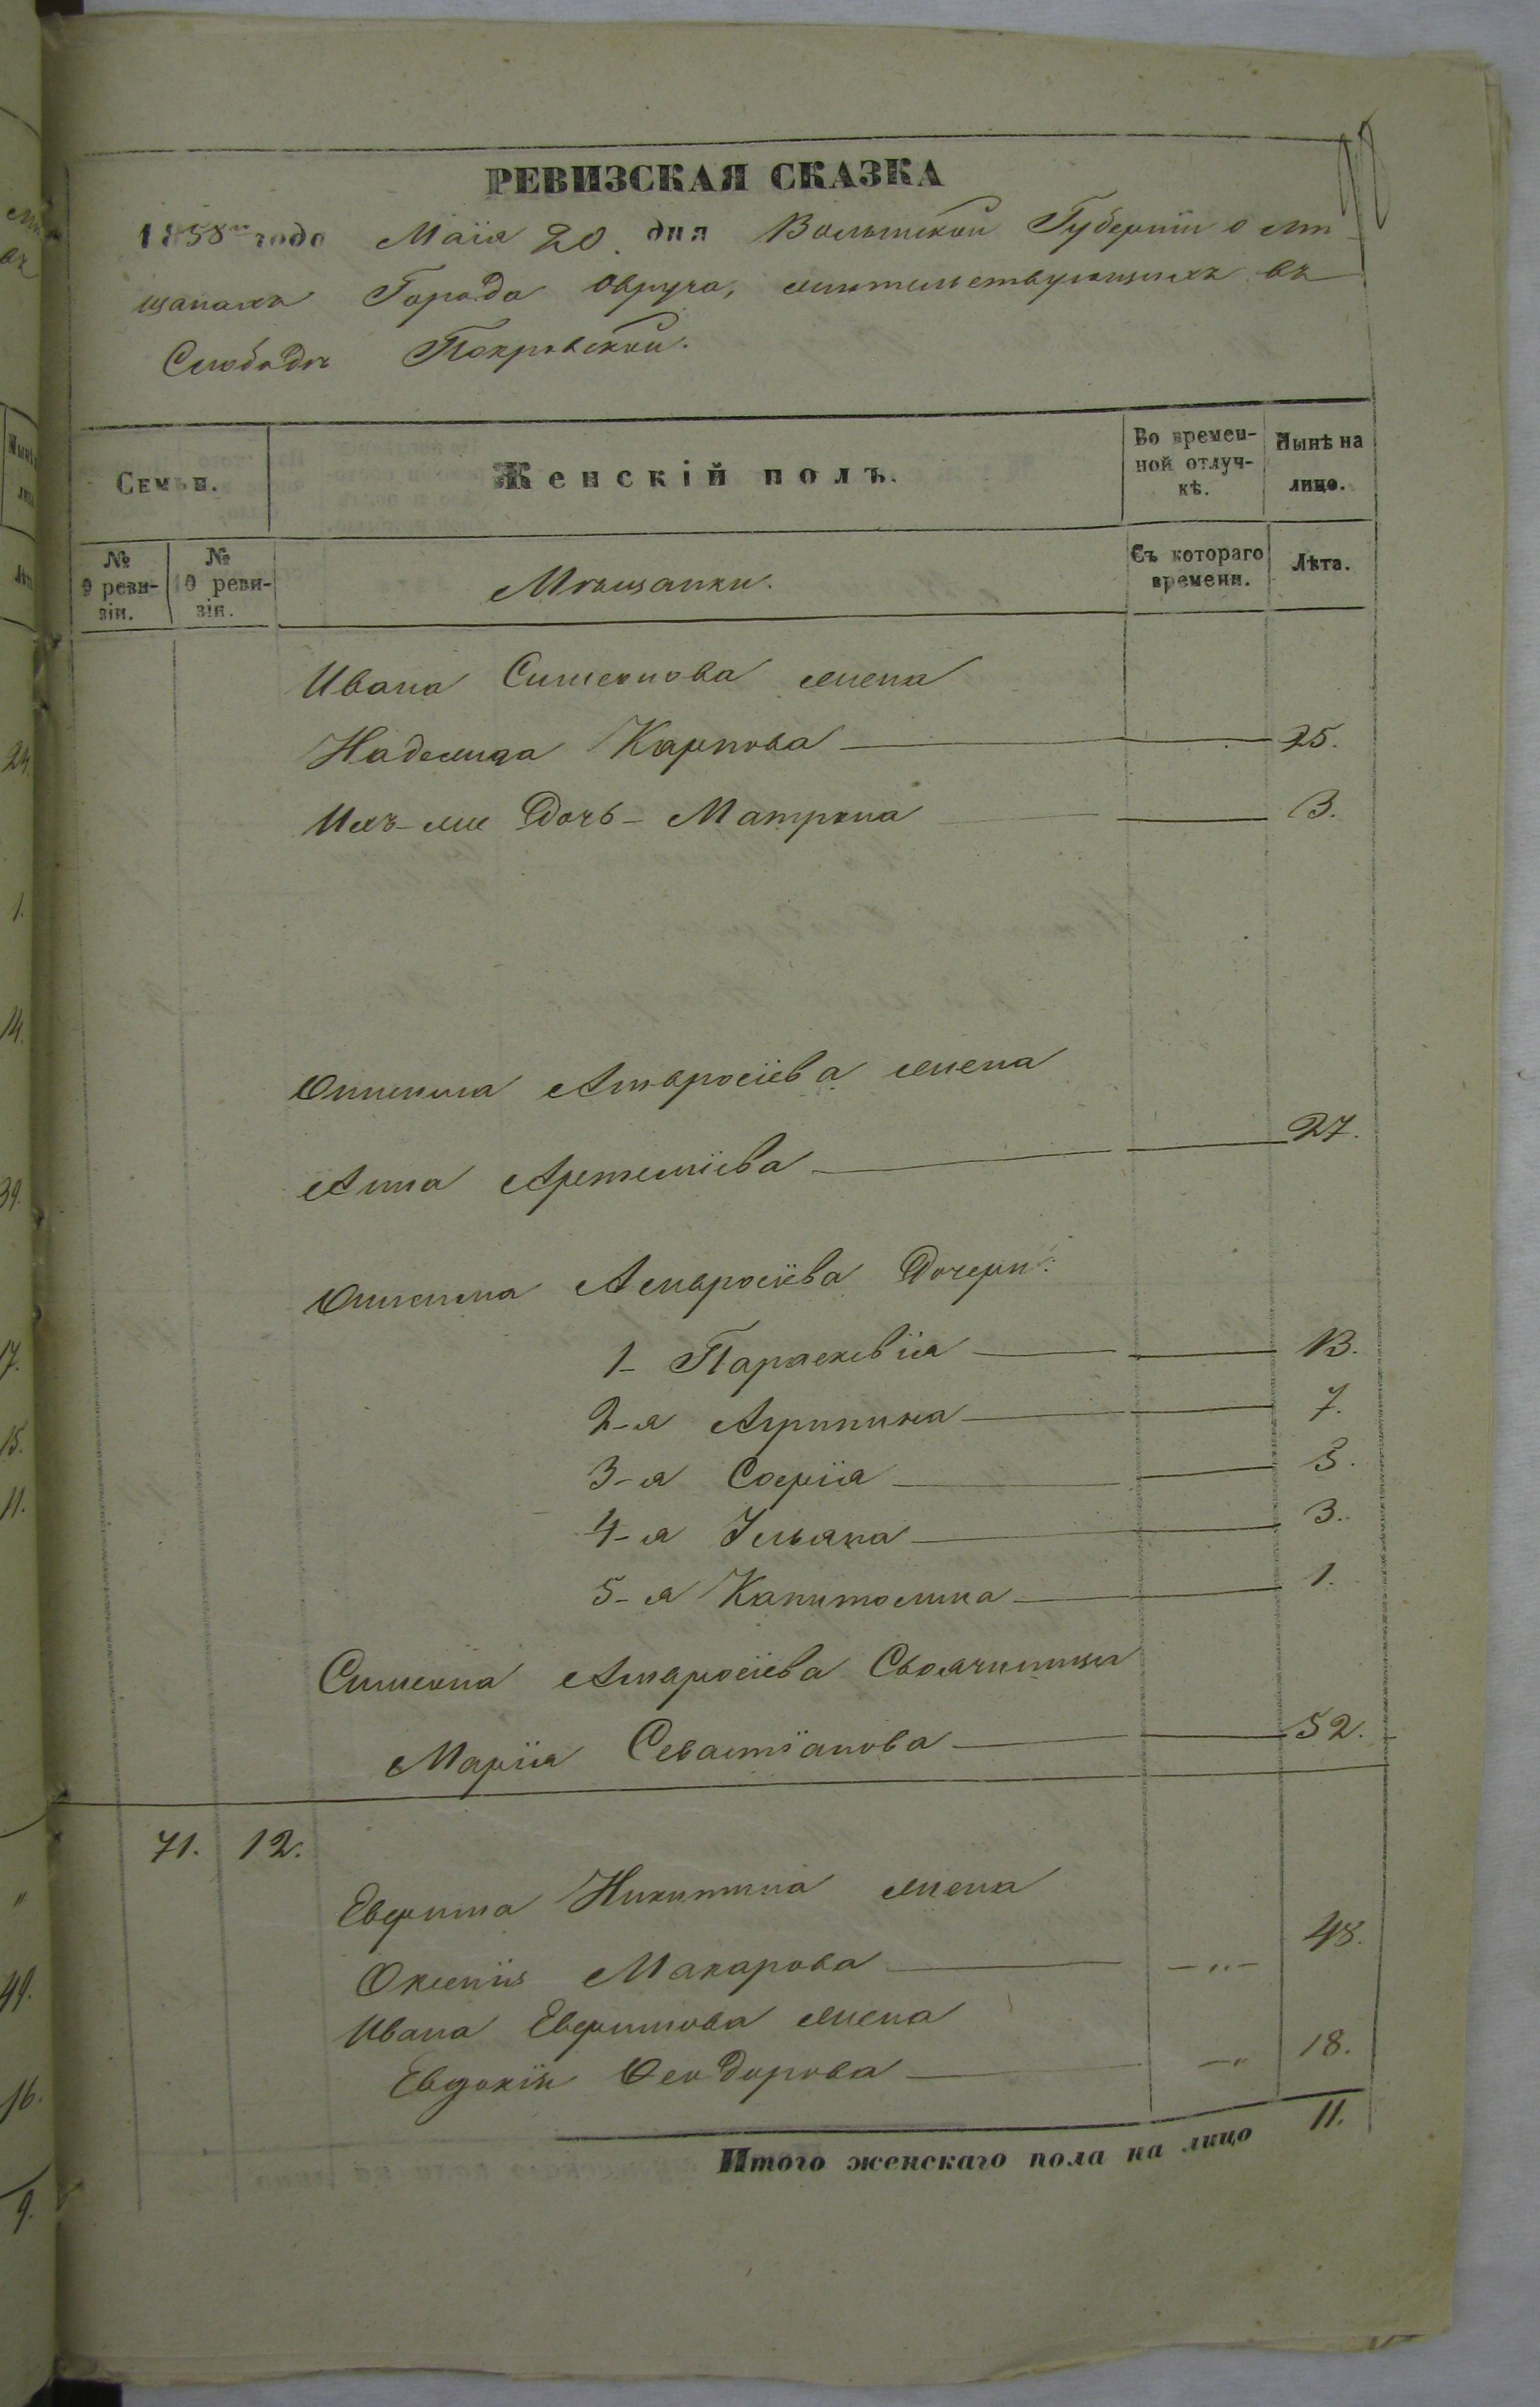 РЕВИЗСКАЯ СКАЗКА
1858го года Маія 20 дня Волынской Губерніи о мѣ-
щанахъ Города Овруча, жительствующихъ въ
Слободѣ Покровской.
Семьи.
Женскій полъ.
Во времен-
ной отлуч-
кѣ.
Нынѣ на
лицо.
№
9 реви-
зіи.
№
10 реви-
зіи.
Мѣщанки.
Съ котораго
времени.
Лѣта.
Ивана Симеонова жена
Надежда Карпова 25.
Ихъ-же Дочь - Матрона 3.
Амвросіева жена
Анна Артеміева 27.
Амвросіева Дочери:
1- Параскевія 13.
2-я Агрипина 7.
3-я Софія 5.
4-я Ульяна 3.
5-я Капитолина 1.
Симеона Амвросіева Своячиница
Марія Севастіанова 52.
71. 12.
Евфима Никитина жена
Оксенія Макарова -"- 48.
Ивана Евфимова жена
Евдокія Феодорова -" 18.
Итого женскаго пола на лицо 11.